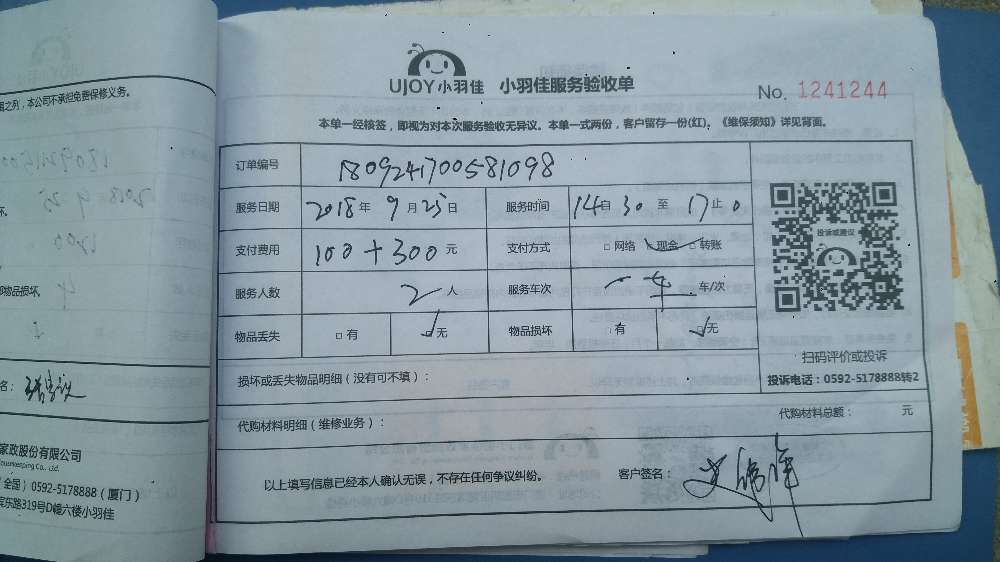 之列，本公司不承担免费保修义务。
2018 9 25
物品损坏。
名：
家政股份有限公司
ousekeeping Co., Ltd.
全国）0592-5178888（厦门）
东路319号D幢六楼小羽佳
UJOY小羽佳 小羽佳服务验收单
No. 1241244
本单一经核签，即视为对本次服务验收无异议。本单一式两份，客户留存一份(红)。《维保须知》详见背面。
订单编号 180924700581098
服务日期 2018年 9月25日 服务时间 14自30至17止0
支付费用 100+300元 支付方式 □网络 现金 □转账
服务人数 2人 服务车次 一车 车/次
物品丢失 □有 √无 物品损坏 □有 √无
投诉或建议
扫码评价或投诉
投诉电话：0592-5178888转2
损坏或丢失物品明细（没有可不填）：
代购材料明细（维修业务）： 代购材料总额： 元
以上填写信息已经本人确认无误，不存在任何争议纠纷。 客户签名：